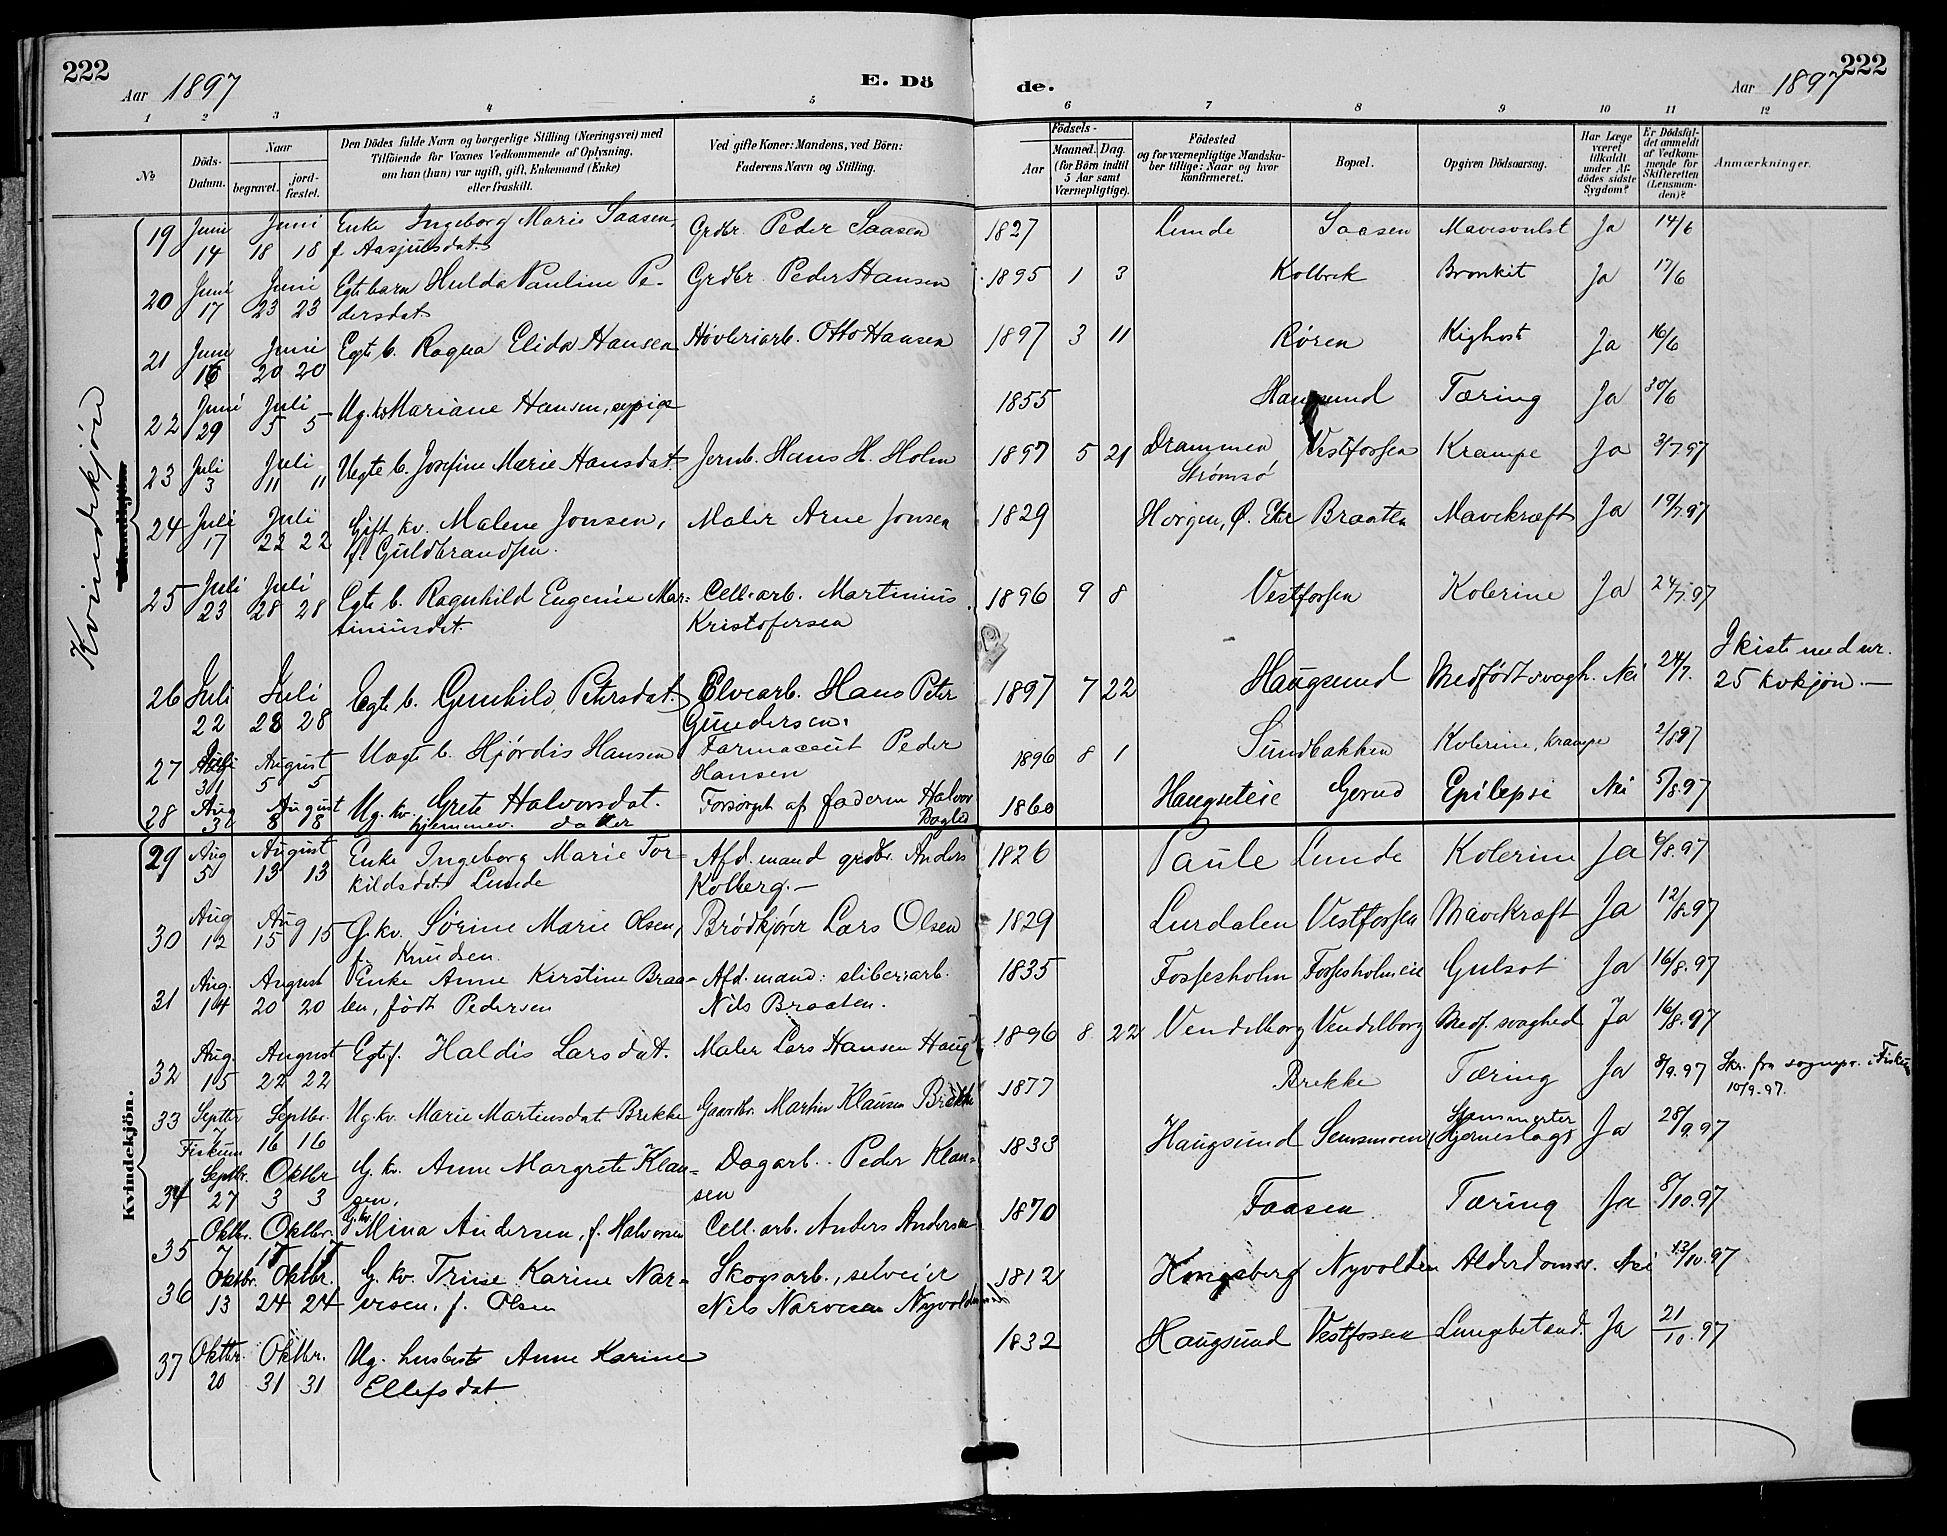 222
Aar 1897
E. Dö
de.
Aar 1897
222
1 2 3 4 5 6 7 8 9 10 11 12
№
Döds-Datum.
Naar
begravet.
jord-fæstet.
Den Dödes fulde Navn og borgerlige Stilling (Næringsvei) med
Tilföiende for Voxnes Vedkommende af Oplysning,
om han (hun) var ugift, gift, Enkemand (Enke)
eller fraskilt.
Ved gifte Koner: Mandens, ved Börn:
Faderens Navn og Stilling.
Födsels-
Aar
Maaned. Dag.
(for Börn indtil
5 Aar samt
Værnepligtige).
Födested
og for værnepligtige Mandska-
ber tillige: Naar og hvor
konfirmeret.
Bopæl.
Opgiven Dödsaarsag.
Har Læge
været
tilkaldt
under Af-
dödes sidste
Sygdom?
Er Dödsfal-
det anmeldt
af Vedkom-
mende for
Skifteretten
(Lensman-
den)?
Anmærkninger.
Kvindekjön
Kvindekjön.
19 Juni 14 Juni 18 18 Enke Ingeborg Marie Saasen, Grdbr. Peder Saasen 1827 Lunde Saasen Mavesvulst Ja 14/6
f. Aasjulsdat.
20 Juni 17 Juni 23 23 Egte barn Hulda Pauline Pe- Grdbr. Peder Hansen 1895 1 3 Kolbrek Bronkit Ja 17/6
dersdat
21 Juni 16 Juni 20 20 Egte b. Ragna Elida Hansen Høvleriarb. Otto Hansen 1897 3 11 Røren Kighoste Ja 16/6
22 Juni 29 Juli 5 5 Ug. Mariane Hansen, sypige 1855 Haugsund Tæring Ja 30/6
23 Juli 3 Juli 11 11 Uegte b. Josefine Marie Hansdat Jernb. Hans H. Holm 1897 5 21 Drammen Vestfossen Krampe Ja 3/7 97
Strømsø
24 Juli 17 Juli 22 22 Gift kv. Malene Jonsen, Maler Arne Jonsen 1829 Horgen, Ø. Eker Braaten Mavekræft Ja 19/7 97
f. Guldbrandsen.
25 Juli 23 Juli 28 28 Egte b. Ragnhild Eugenie Mar- Cell. arb. Martinius 1896 9 8 Vestfossen Kolerine Ja 24/7 97
tiniusdat. Kristofersen
26 Juli 22 Juli 28 28 Egte b. Gunhild Petersdat. Elvearb. Hans Peter 1897 7 22 Haugsund Medfødt svagh. Nei 24/7. I kiste med nr.
Gundersen. 25 kvkjøn. —
27 Juli 31 August 5 5 Uægte b. Hjørdis Hansen Farmaceut Peder 1896 8 1 Sundbakken Kolerine, krampe 2/8 97
Hansen
28 Aug 3 August 8 8 Ug. kv. Grete Halvorsdat. Forsørget af faderen Halvor 1860 Haugseteie Gerud Epilepsi Nei 5/8 97
hjemmev. datter
29 Aug 5 August 13 13 Enke Ingeborg Marie Tor- Afd. mand grdbr. Anders 1826 Paule Lunde Kolerine Ja 6/8. 97
kildsdat. Lunde Kolberg. —
30 Aug 12 Aug 15 15 G. kv. Sørine Marie Olsen, Brødkjører Lars Olsen 1829 Lurdalen Vestfossen Mavekræft Ja 12/8. 97
f. Knudsen.
31 Aug. 14 August 20 20 Enke Anne Kirstine Braa- Afd. mand: sliberiarb. 1835 Fossesholm Fossesholmeie Gulsot Ja 16/8. 97
ten, født Pedersen Nils Braaten.
32 Aug. 15 August 22 22 Egte f. Haldis Larsdat. Maler Lars Hansen Haug 1896 8 22 Vendelborg Vendelborg Medf. svaghed Ja 16/8. 97
33 Septbr 7 Septbr. 16 16 Ug. kv. Marie Martinsdat Brekke Gaardbr. Martin Klausen Brekke 1877 Brekke Tæring Ja 8/9. 97 Skr. fra sognepr. i Fiskum
Fiskum 10/9. 97.
34 Septbr. 27 Oktbr 3 3 G. kv. Anne Margrete Klau- Dagarb. Peder Klau- 1833 Haugsund Semsmoen Hjerneslag Ja 28/9. 97
sen, sen
35 Oktbr. 7 Oktbr. 17 17 G. kv. Mina Andersen, f. Halvorsen Cell. arb. Anders Andersen 1870 Faasen Tæring Ja 8/10. 97
36 Oktbr. 13 Oktbr. 24 24 G. kv. Trine Karine Nar- Skogsarb., selveier 1812 Kongsberg Nyvolden Alderdomss. Nei 13/10. 97
vesen, f. Olsen Nils Narvesen Nyvolden
37 Oktbr. 20 Oktbr. 31 31 Ug. Anne Karine 1832 Haugsund Vestfossen Lungebetænd. Ja 21/10. 97
Ellefsdat